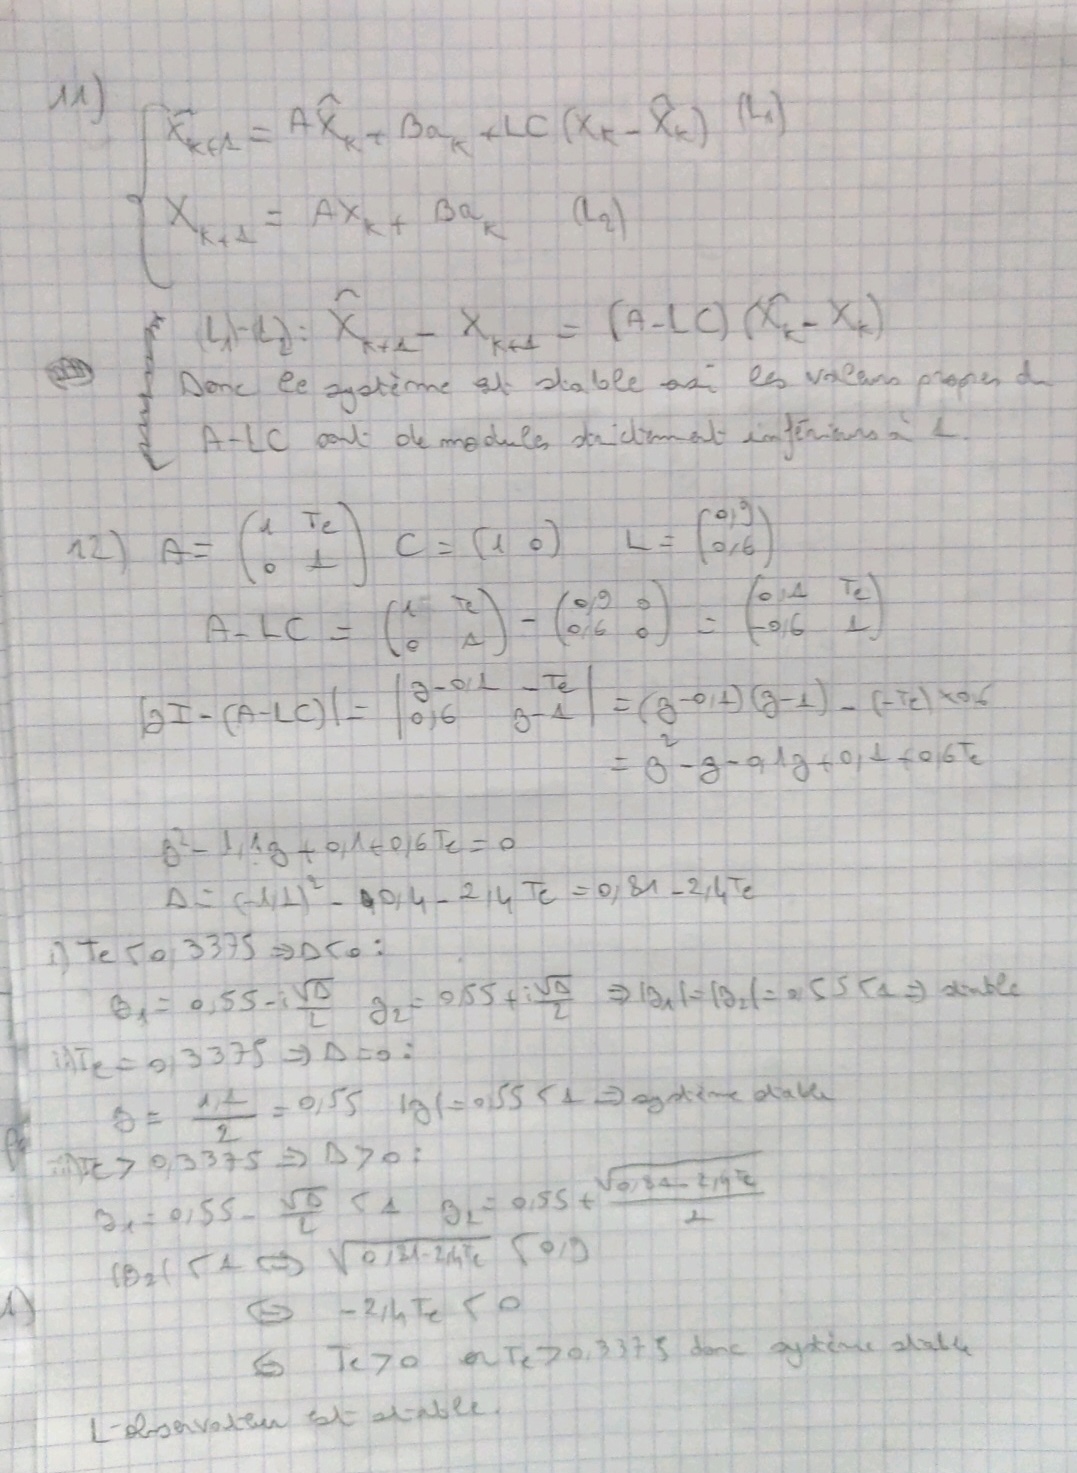 11) X̂_{k+1} = AX̂_k + Ba_k + LC(X_k - X̂_k) (L₁)
X_{k+1} = AX_k + Ba_k (L₂)
(L₁)-(L₂): X̂_{k+1} - X_{k+1} = (A-LC)(X̂_k - X_k)
Donc le système est stable ssi les valeurs propres de
A-LC sont de modules strictement inférieurs à 1.
12) A = (1 Te ; 0 1) C = (1 0) L = (0,9 ; 0,6)
A-LC = (1 Te ; 0 1) - (0,9 0 ; 0,6 0) = (0,1 Te ; -0,6 1)
|zI-(A-LC)| = |z-0,1 -Te ; 0,6 z-1| = (z-0,1)(z-1) - (-Te)×0,6
= z² - z - 0,1z + 0,1 + 0,6Te
z² - 1,1z + 0,1 + 0,6Te = 0
Δ = (-1,1)² - 0,4 - 2,4Te = 0,81 - 2,4Te
i) Te < 0,3375 ⇒ Δ < 0 :
z₁ = 0,55 - i√Δ/2 z₂ = 0,55 + i√Δ/2 ⇒ |z₁| = |z₂| = 0,55 < 1 ⇒ stable
ii) Te = 0,3375 ⇒ Δ = 0 :
z = 1,1/2 = 0,55 |z| = 0,55 < 1 ⇒ système stable
iii) Te > 0,3375 ⇒ Δ > 0 :
z₁ = 0,55 - √Δ/2 < 1 z₂ = 0,55 + √(0,81-2,4Te)/2
|z₂| < 1 ⇔ √(0,81-2,4Te) < 0,9
⇔ -2,4Te < 0
⇔ Te > 0 or Te > 0,3375 donc système stable
L'observateur est stable.